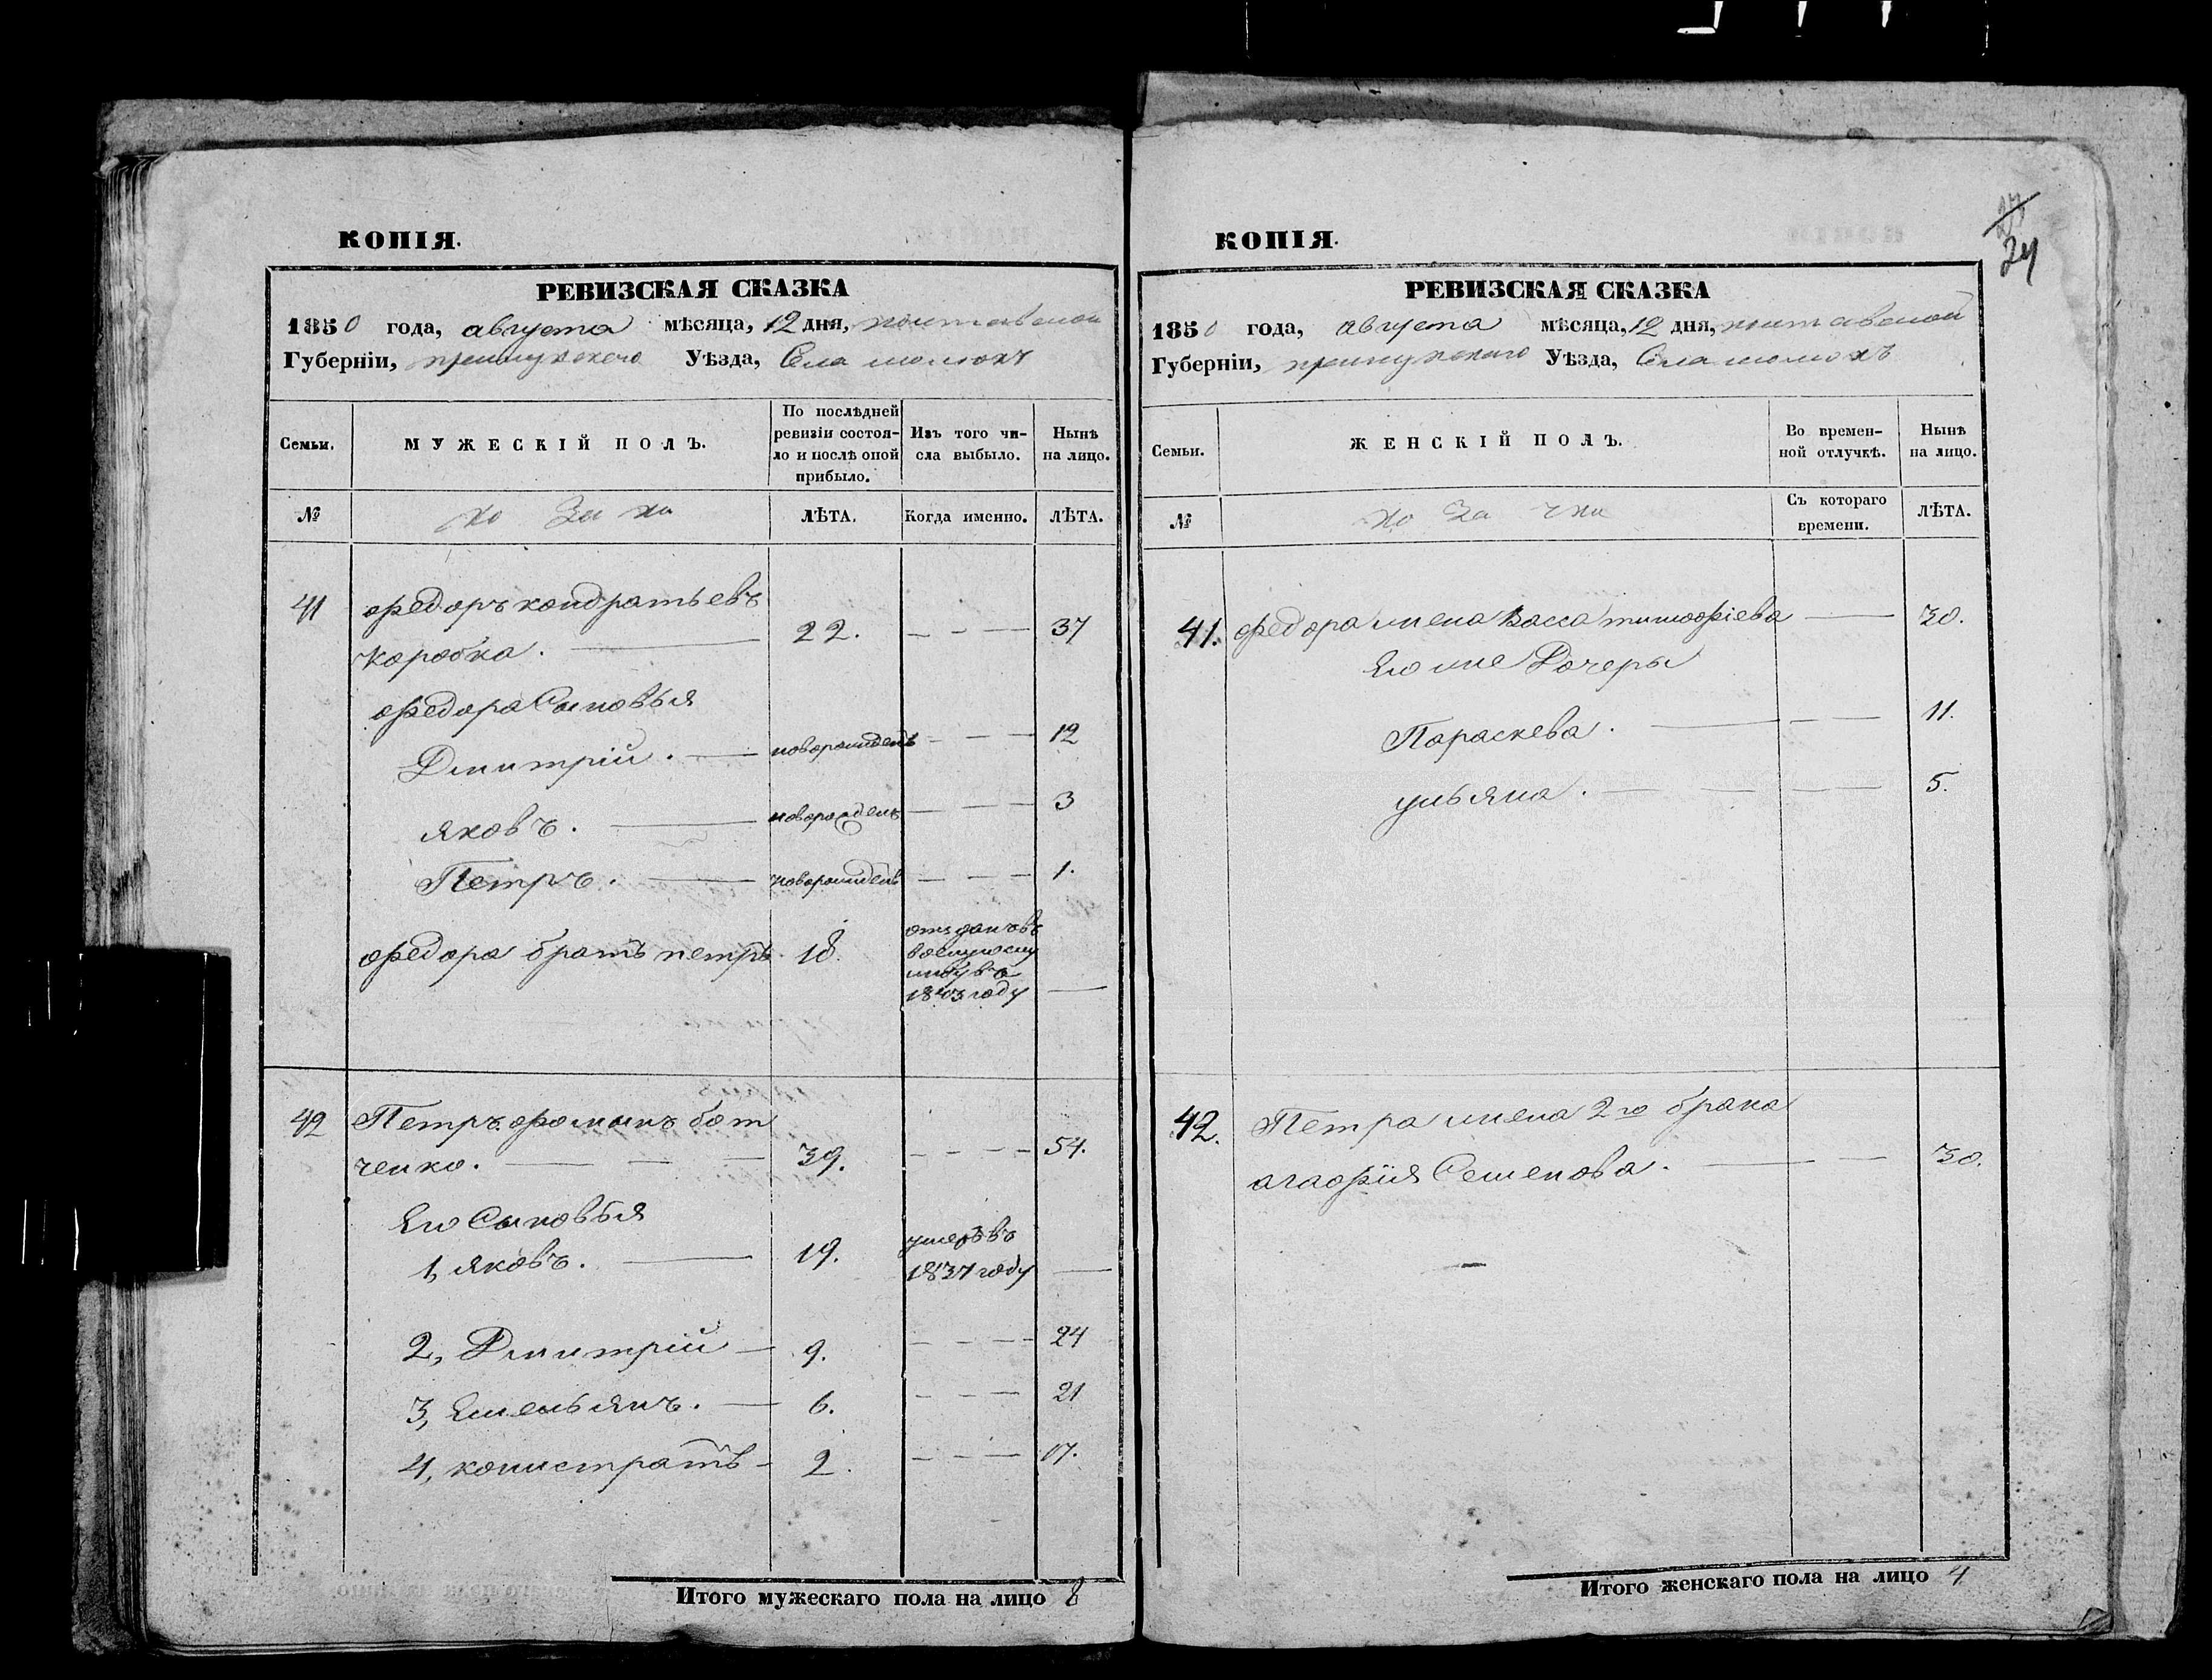 КОПІЯ.
РЕВИЗСКАЯ СКАЗКА
1850 года, августа мѣсяца, 12 дня, полтавской
Губерніи, прилуцкого Уѣзда, Села
Семьи.
МУЖЕСКІЙ ПОЛЪ.
По послѣдней
ревизіи состоя-
ло и послѣ оной
прибыло.
Изъ того чи-
сла выбыло.
Нынѣ
на лицо.
№
козаки
ЛѢТА.
Когда именно.
ЛѢТА.
41 федоръ кондратьевъ
коробка. 22. 37
федора Сыновья
Дмитрій. новорожденъ 12
яковъ. новорожденъ 3
Петръ. новорожденъ 1.
федора братъ петръ. 18.
отданъ въ
военную слу
жбу въ
1843 году
42 Петръ фоминъ бот
ченко. 39. 54.
Его Сыновья
1, яковъ. 19.
умеръ въ
1837 году
2, Дмитрій 9. 24
3, Емельянъ. 6. 21
4, калистратъ 2. 17.
Итого мужескаго пола на лицо 8
КОПІЯ.
24
РЕВИЗСКАЯ СКАЗКА
1850 года, августа мѣсяца, 12 дня, полтавской
Губерніи, прилуцкого Уѣзда, Села
Семьи.
ЖЕНСКІЙ ПОЛЪ.
Во времен-
ной отлучкѣ.
Нынѣ
на лицо.
№
козачки
Съ котораго
времени.
ЛѢТА.
41. федора жена Васса тимофіева 30.
Его же Дочеры
Параскева. 11.
ульяна. 5.
42. Петра жена 2го брака
агафія Семенова. 30.
Итого женскаго пола на лицо 4